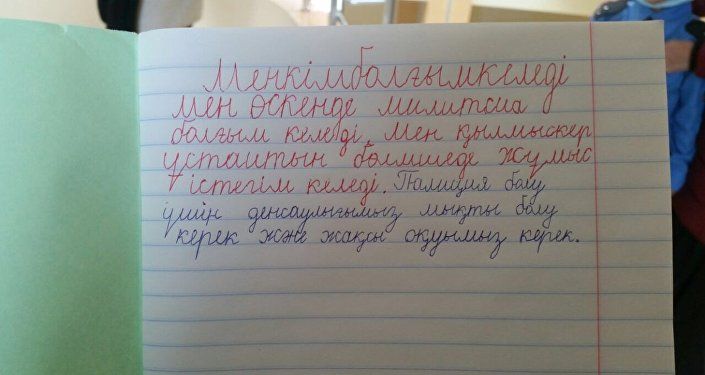 Менкімболғымкеледі
Мен өскенде милитсиа
болғым келеді. Мен қылмыскер
ұстаитын бөлмшеде жұмыс
істегім келеді. Палиция болу
үшін денсаулығымыз мықты болу
керек және жақсы оқуымыз керек.